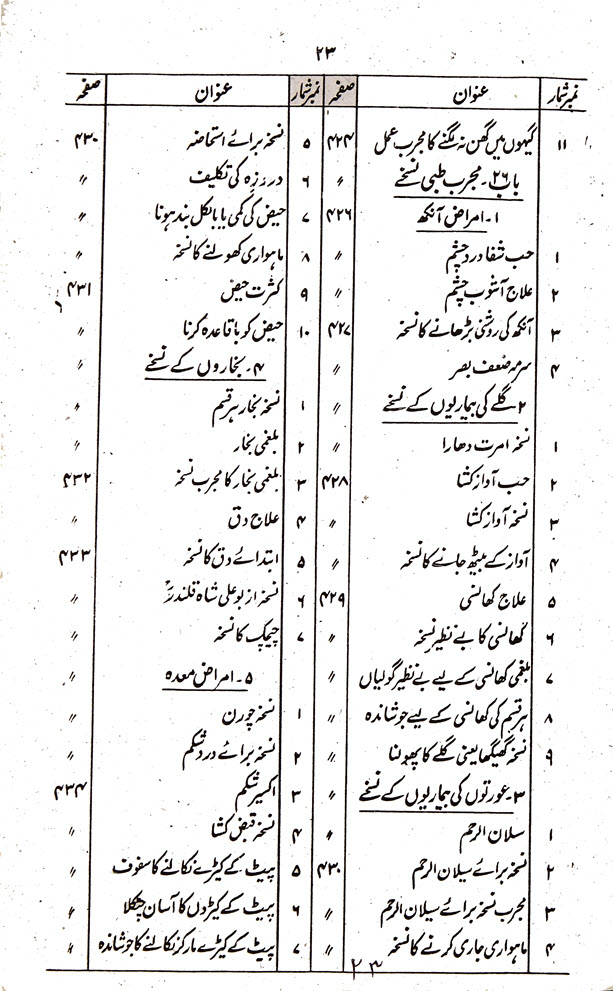 ۲۳
نمبر شمار عنوان صفحہ
۱۱ گیہوں میں گھن نہ لگنے کا مجرب عمل ۴۲۴
باب ۲۶۔ مجرب طبی نسخے 〃
۱۔ امراض آنکھ ۴۲۶
۱ حب شفا درد چشم 〃
۲ علاج آشوب چشم 〃
۳ آنکھ کی روشنی بڑھانے کا نسخہ ۴۲۷
۴ سرمہ ضعف بصر 〃
۲۔ گلے کی بیماریوں کے نسخے 〃
۱ نسخہ امرت دھارا 〃
۲ حب آواز کشا ۴۲۸
۳ نسخہ آواز کشا 〃
۴ آواز کے بیٹھ جانے کا نسخہ 〃
۵ علاج کھانسی ۴۲۹
۶ کھانسی کا بے نظیر نسخہ 〃
۷ بلغمی کھانسی کے لیے بے نظیر گولیاں 〃
۸ ہر قسم کی کھانسی کے لیے جوشاندہ 〃
۹ نسخہ گھیگھا یعنی گلے کا پھولنا 〃
۳۔ عورتوں کی بیماریوں کے نسخے 〃
۱ سلان الرحم 〃
۲ نسخہ برائے سیلان الرحم ۴۳۰
۳ مجرب نسخہ برائے سیلان الرحم 〃
۴ ماہواری جاری کرنے کا نسخہ 〃
نمبر شمار عنوان صفحہ
۵ نسخہ برائے استحاضہ ۴۳۰
۶ درد زہ کی تکلیف 〃
۷ حیض کی کمی یا بالکل بند ہونا 〃
۸ ماہواری کھولنے کا نسخہ 〃
۹ کثرت حیض ۴۳۱
۱۰ حیض کو باقاعدہ کرنا 〃
۴۔ بخاروں کے نسخے 〃
۱ نسخہ بخار ہر قسم 〃
۲ بلغمی بخار 〃
۳ بلغمی بخار کا مجرب نسخہ ۴۳۲
۴ علاج دق 〃
۵ ابتدائے دق کا نسخہ ۴۳۳
۶ نسخہ از بوعلی شاہ قلندرؒ 〃
۷ چیچک کا نسخہ 〃
۵۔ امراض معدہ 〃
۱ نسخہ چورن 〃
۲ نسخہ برائے درد شکم 〃
۳ اکسیر شکم ۴۳۴
۴ نسخہ قبض کشا 〃
۵ پیٹ کے کیڑے نکالنے کا سفوف 〃
۶ پیٹ کے کیڑوں کا آسان چٹکلا 〃
۷ پیٹ کے کیڑے مار کر نکالنے کا جوشاندہ 〃
۲۳